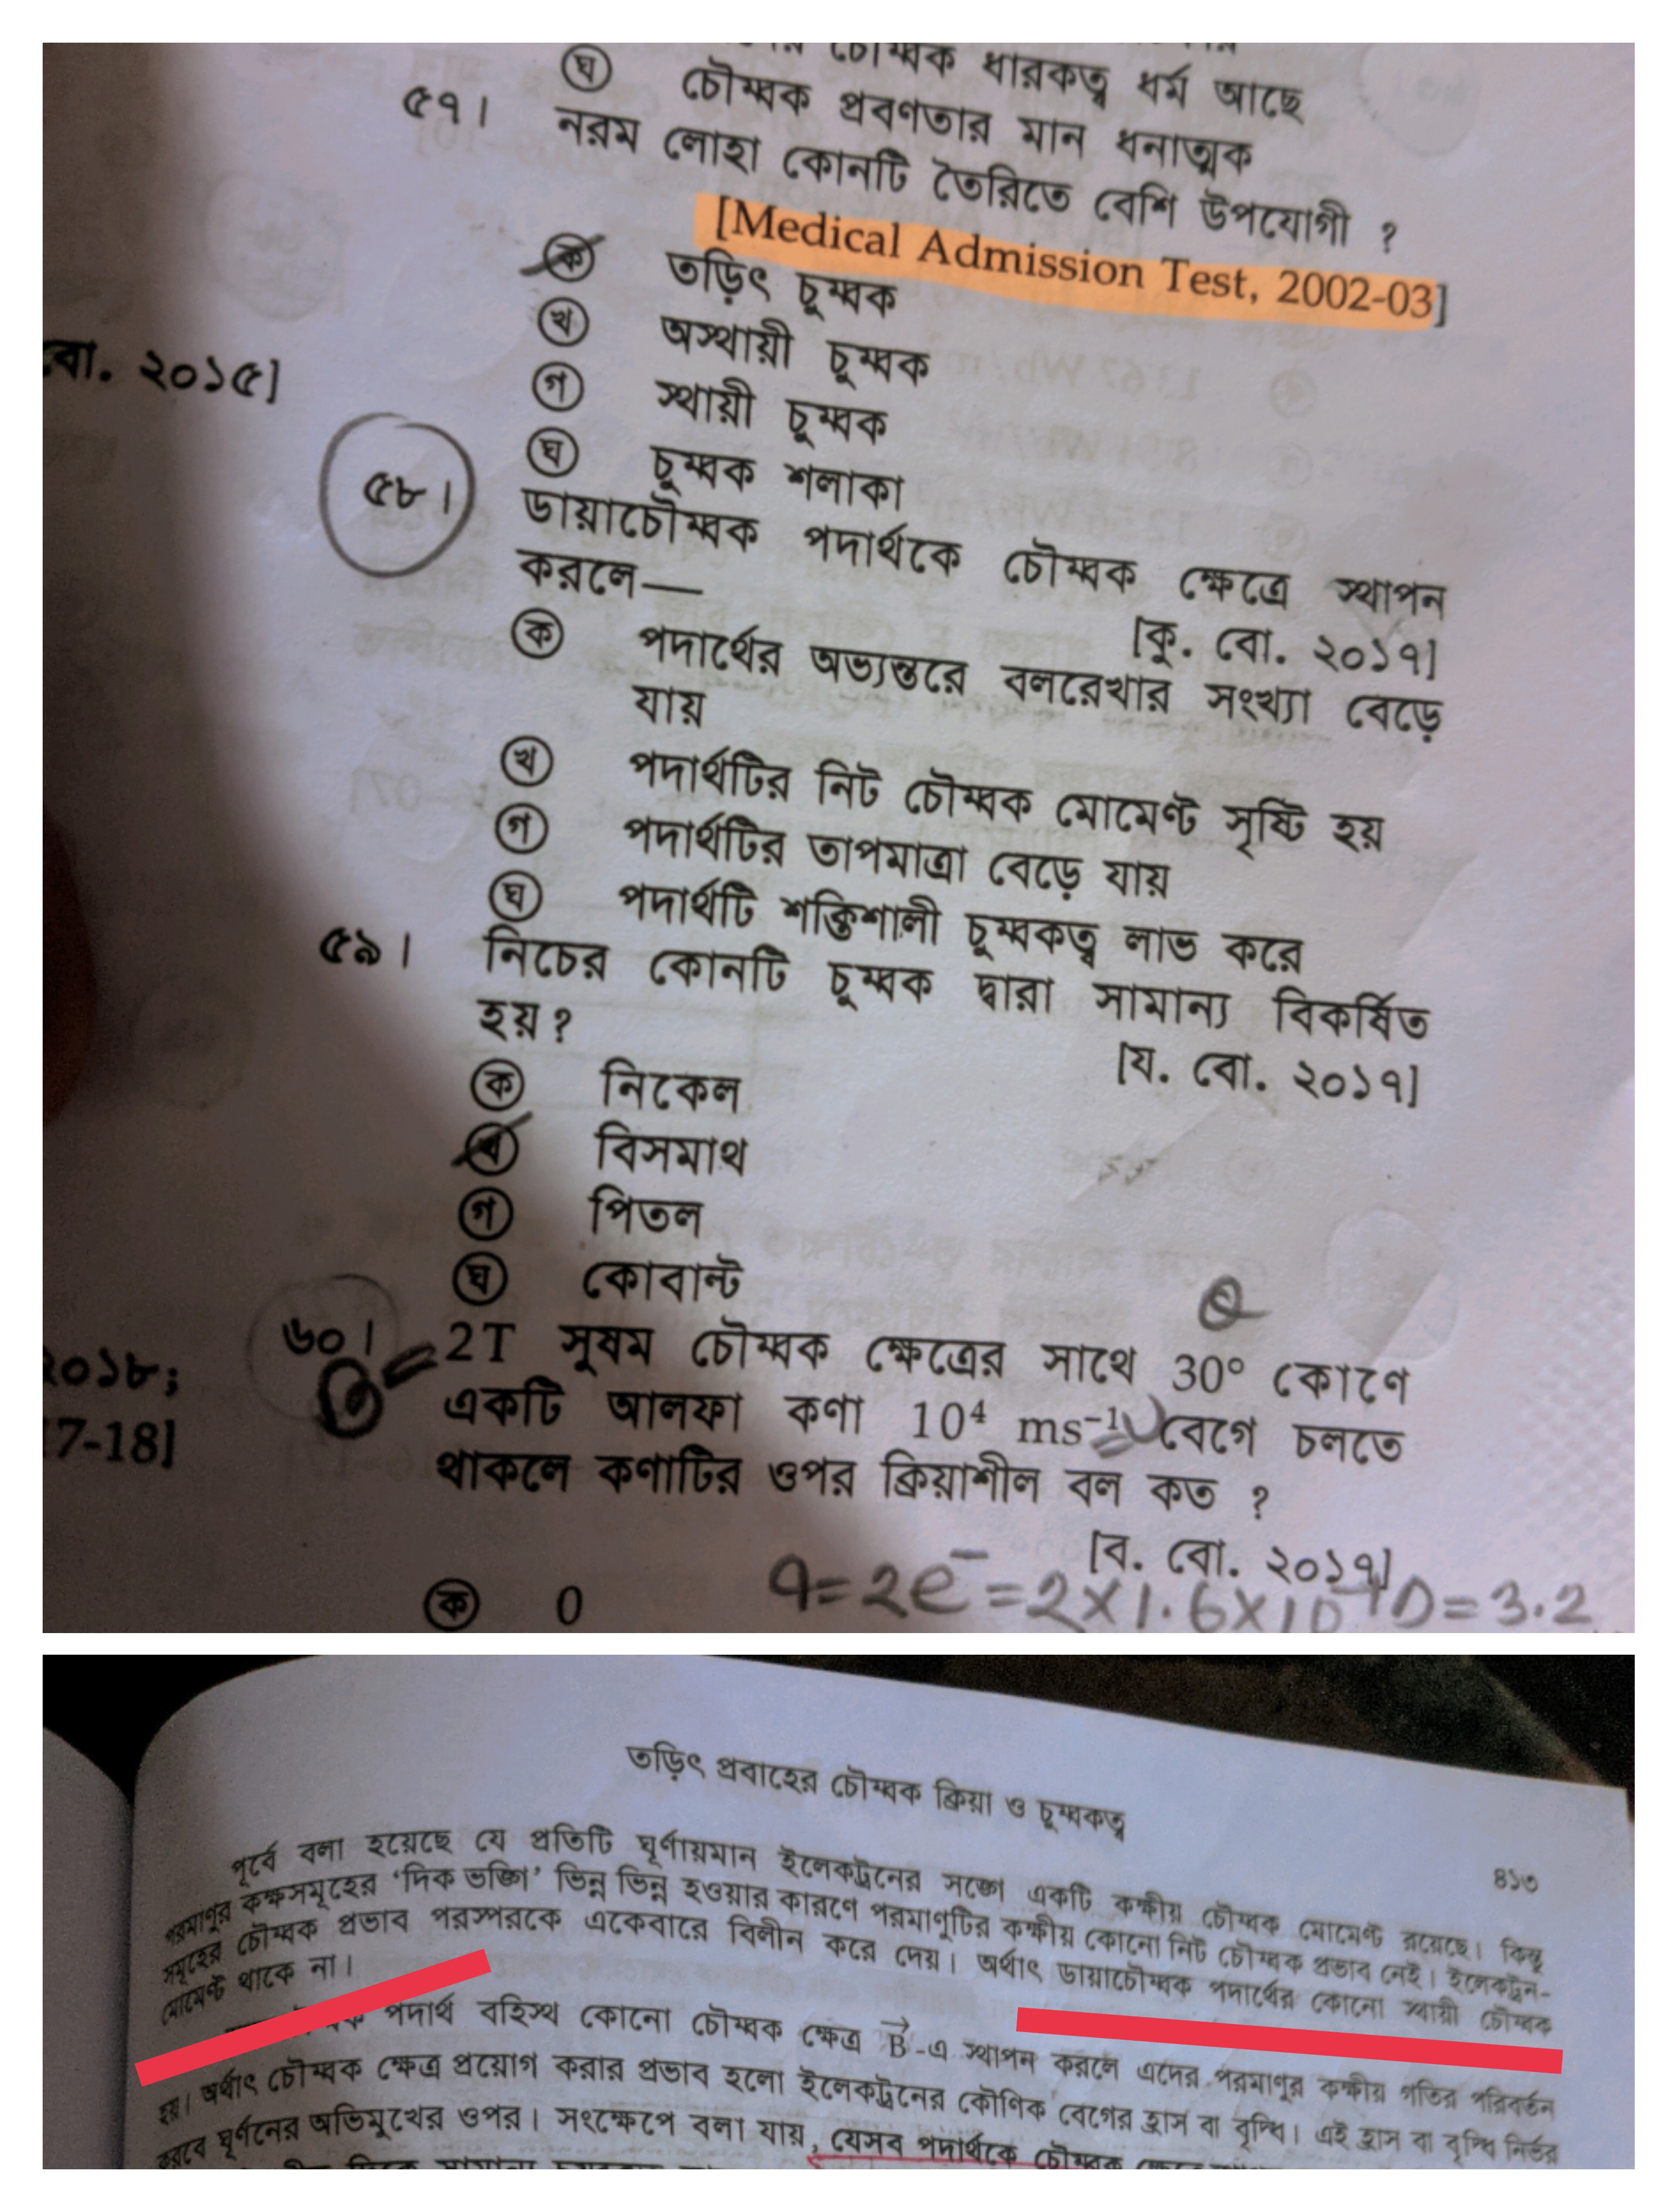 চৌম্বক ধারকত্ব ধর্ম আছে
ঘ চৌম্বক প্রবণতার মান ধনাত্মক
৫৭। নরম লোহা কোনটি তৈরিতে বেশি উপযোগী ?
[Medical Admission Test, 2002-03]
ক তড়িৎ চুম্বক
খ অস্থায়ী চুম্বক
গ স্থায়ী চুম্বক
ঘ চুম্বক শলাকা
বো. ২০১৫]
৫৮। ডায়াচৌম্বক পদার্থকে চৌম্বক ক্ষেত্রে স্থাপন
করলে—
[কু. বো. ২০১৭]
ক পদার্থের অভ্যন্তরে বলরেখার সংখ্যা বেড়ে
যায়
খ পদার্থটির নিট চৌম্বক মোমেন্ট সৃষ্টি হয়
গ পদার্থটির তাপমাত্রা বেড়ে যায়
ঘ পদার্থটি শক্তিশালী চুম্বকত্ব লাভ করে
৫৯। নিচের কোনটি চুম্বক দ্বারা সামান্য বিকর্ষিত
হয়?
[য. বো. ২০১৭]
ক নিকেল
খ বিসমাথ
গ পিতল
ঘ কোবাল্ট
৬০। 2T সুষম চৌম্বক ক্ষেত্রের সাথে 30° কোণে
একটি আলফা কণা 10⁴ ms⁻¹ বেগে চলতে
থাকলে কণাটির ওপর ক্রিয়াশীল বল কত ?
[ব. বো. ২০১৭]
২০১৮;
7-18]
ক 0
q=2e⁻=2×1.6×10 = 3.2
তড়িৎ প্রবাহের চৌম্বক ক্রিয়া ও চুম্বকত্ব
৪১৩
পূর্বে বলা হয়েছে যে প্রতিটি ঘূর্ণায়মান ইলেকট্রনের সঙ্গে একটি কক্ষীয় চৌম্বক মোমেন্ট রয়েছে। কিন্তু
পরমাণুর কক্ষসমূহের ‘দিক ভঙ্গি’ ভিন্ন ভিন্ন হওয়ার কারণে পরমাণুটির কক্ষীয় কোনো নিট চৌম্বক প্রভাব নেই। ইলেকট্রন-
সমূহের চৌম্বক প্রভাব পরস্পরকে একেবারে বিলীন করে দেয়। অর্থাৎ ডায়াচৌম্বক পদার্থের কোনো স্থায়ী চৌম্বক
মোমেন্ট থাকে না।
পদার্থ বহিস্থ কোনো চৌম্বক ক্ষেত্র B⃗-এ স্থাপন করলে এদের পরমাণুর কক্ষীয় গতির পরিবর্তন
হয়। অর্থাৎ চৌম্বক ক্ষেত্র প্রয়োগ করার প্রভাব হলো ইলেকট্রনের কৌণিক বেগের হ্রাস বা বৃদ্ধি। এই হ্রাস বা বৃদ্ধি নির্ভর
করবে ঘূর্ণনের অভিমুখের ওপর। সংক্ষেপে বলা যায়, যেসব পদার্থকে চৌম্বক